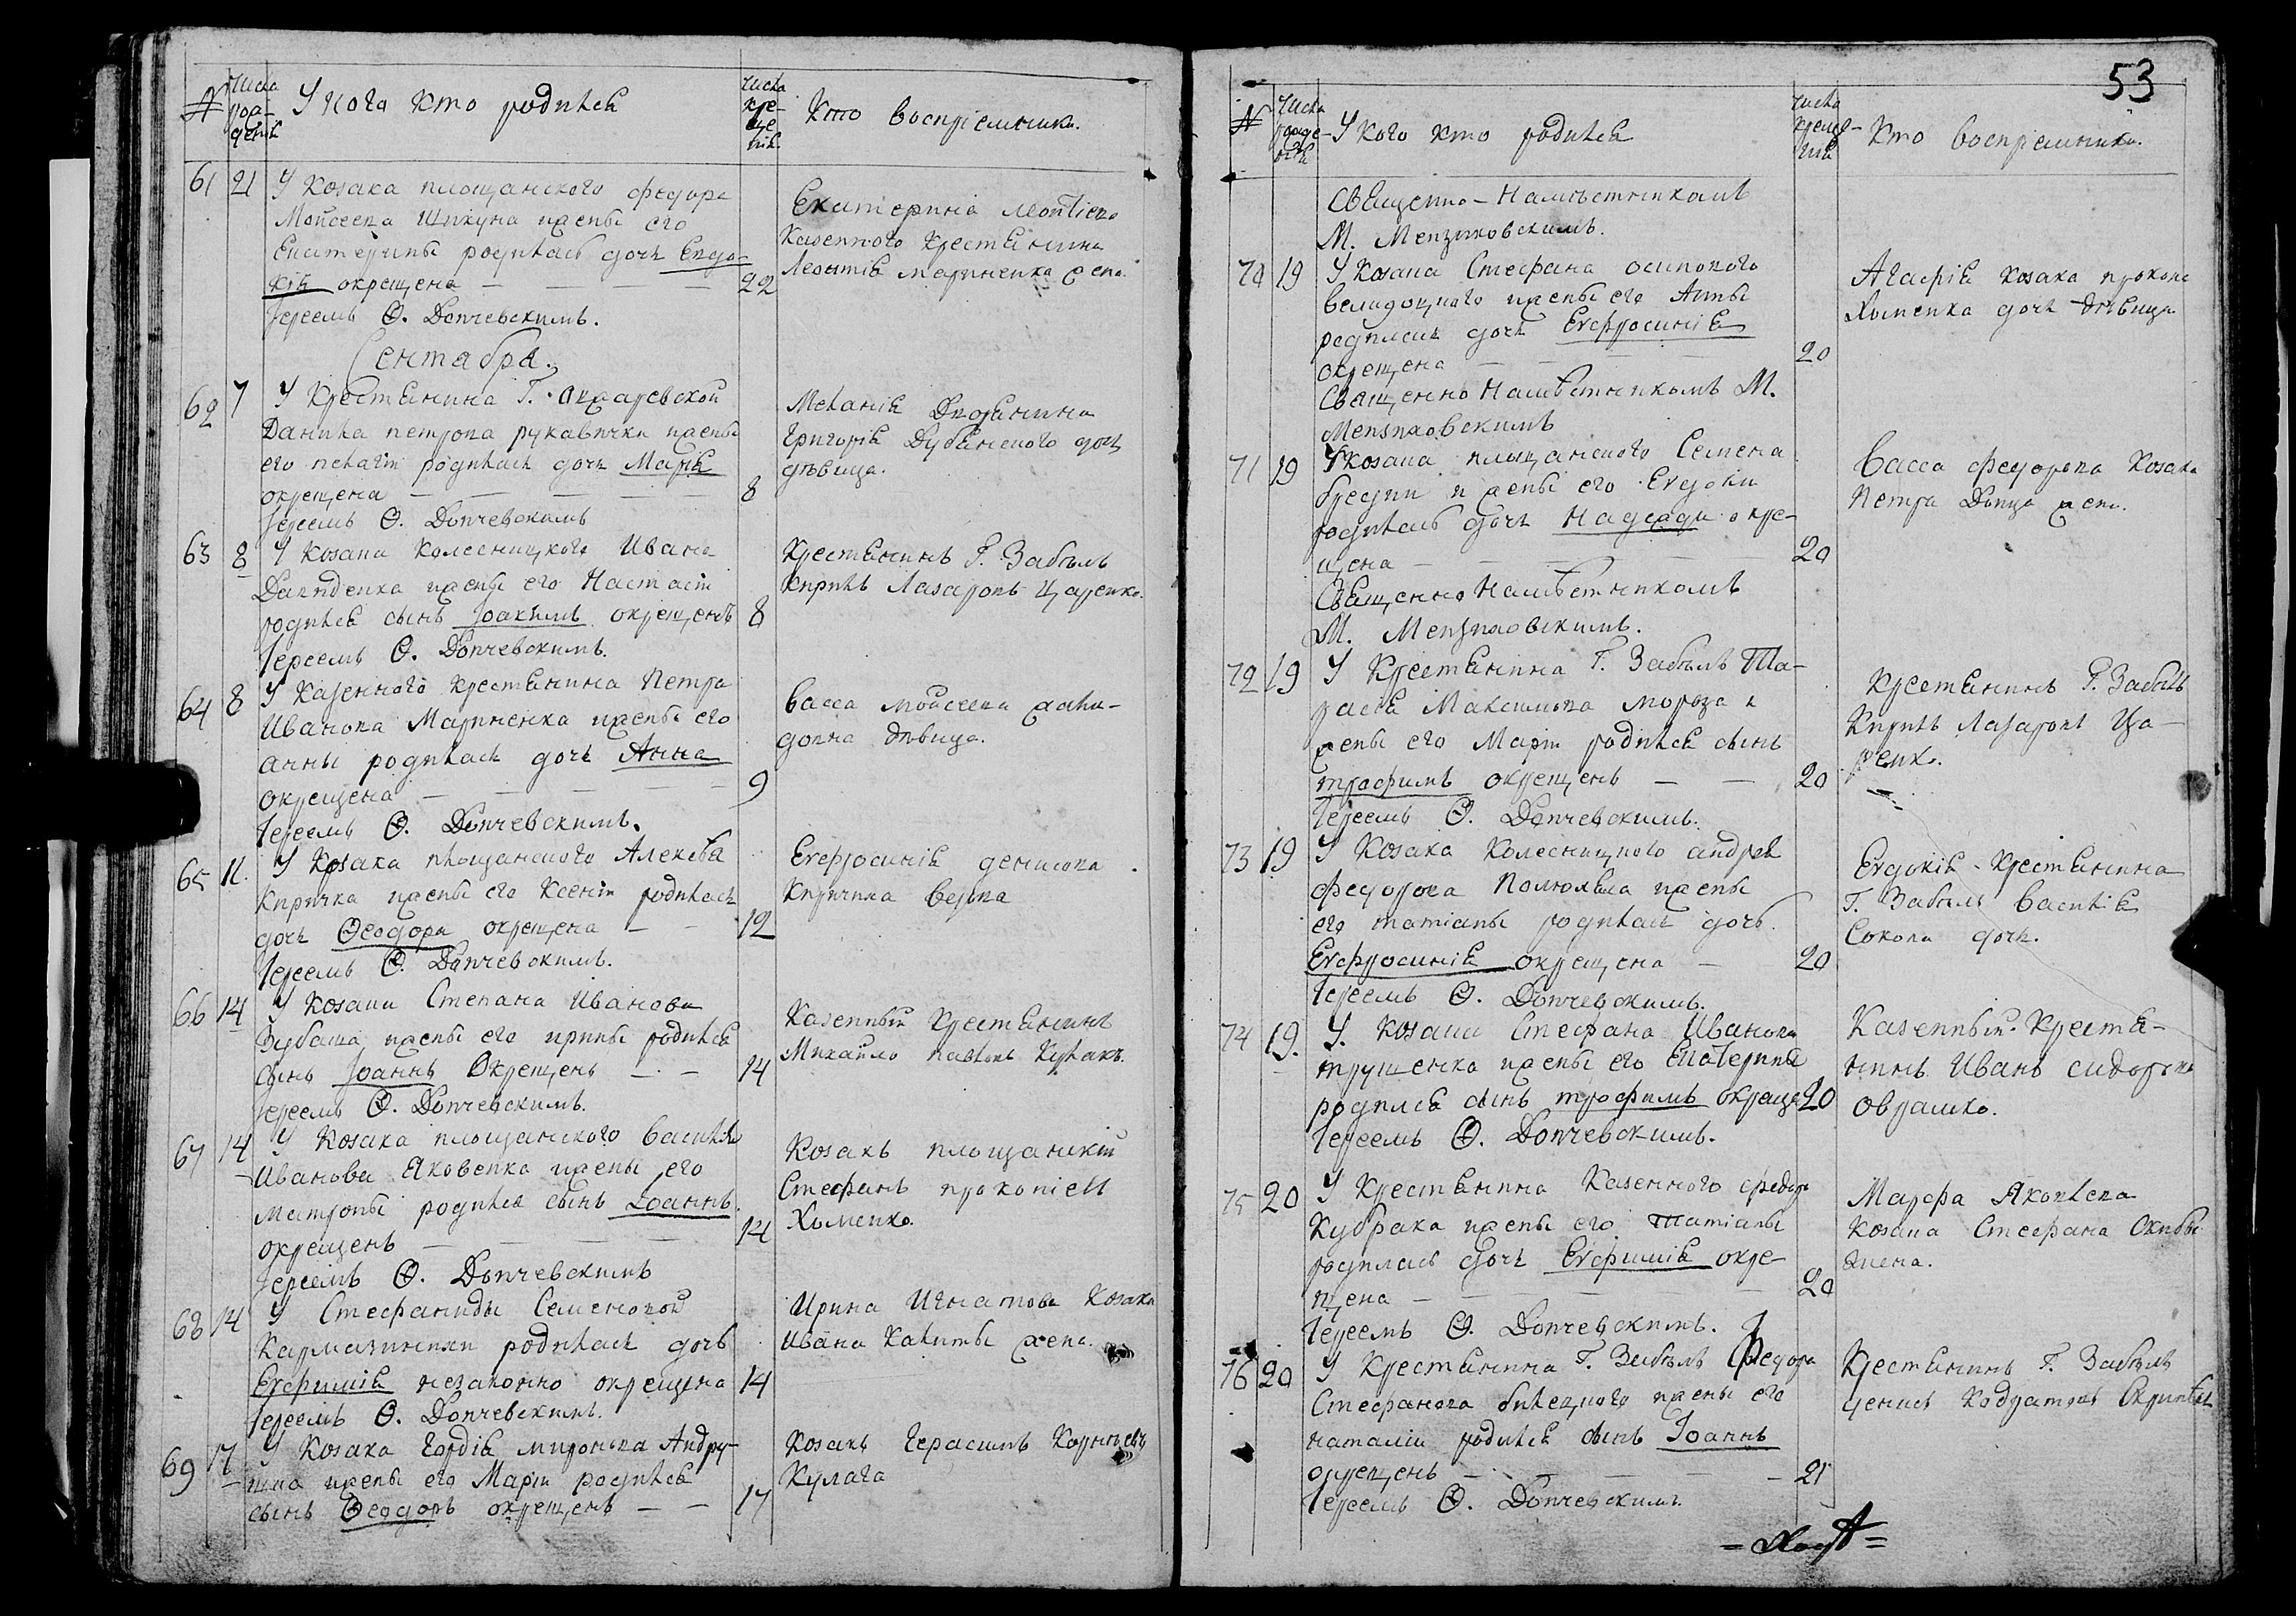 №
Числа рож-деній
У кого кто родился
Числа кре-ще-нія
Кто воспріемники.
61 21 У козака площанского федора
Мойсеева Шикуна жены его
Екатерины родилась дочь Евдо-
кія окрещена — 22
Іереемъ Ѳ. Дончевскимъ.
Екатерина
казенного крестянина
Леонтія Мариненка жена
Сентября.
62 7 У крестянина Г.
Данила петрова рукавички жены
его пелагіи родилась дочь Марія
окрещена — 8
Іереемъ Ѳ. Дончевскимъ
Меланія Дворянина
Григорія Дубянского дочь
дѣвица.
63 8 У козака колесницкого Ивана
Давиденка жены его Настасіи
родился сынъ Іоакимъ окрещенъ 8
Іереемъ Ѳ. Дончевскимъ.
Крестянинъ Г. Забѣлъ
Кирилъ Лазаровъ Царенко.
64 8 У казенного крестянина Петра
Иванова Мариненка жены его
анны родилась дочь Анна
окрещена — 9
Іереемъ Ѳ. Дончевскимъ.
васса мойсеева
дѣвица.
65 11. У козака площанского Алексѣя
Киричка жены его Ксеніи родилась
дочь Ѳеодора окрещена — 12
Іереемъ Ѳ. Дончевскимъ.
Евфросинія денисова
66 14 У козака Степана Иванова
Зубаша жены его ирины родился
сынъ Іоаннъ Окрещенъ — 14
Іереемъ Ѳ. Дончевскимъ.
Казенный крестянинъ
Михайло павловъ
67 14 У козака площанского василія
Иванова Яковенка жены его
матроны родился сынъ Іоаннъ.
окрещенъ — 14
Іереемъ Ѳ. Дончевскимъ
Козакъ площанскій
Стефанъ прокопіевъ
Хоменко.
68 14 У Стефаниды Семеновой
Кармазинки родилась дочь
Евфимія незаконно окрещена 14
Іереемъ Ѳ. Дончевскимъ.
Ирина Игнатова козака
Ивана Калиты жена.
69 17 У козака Гордія миронова Андру-
шка жены его Маріи родился
сынъ Ѳеодоръ окрещенъ — 17
Козакъ Герасимъ Корнѣевъ
Кулага
53
№
Числа рожде-нія
У кого кто родился
Числа креще-нія
Кто воспріемники.
Священно-Намѣстникомъ
М. Мензиховскимъ.
70 19 У козака Стефана осипового
жены его Анны
родилась дочь Евфросинія
окрещена — 20
Священно Намѣстникомъ М.
Мензиховскимъ
Агафія козака прокопа
Хоменка дочь дѣвица
71 19 У козака площанского Семена
жены его Евдокіи
родилась дочь Надежда окре-
щена — 20
Священно Намѣстникомъ
М. Мензиховскимъ.
Васса федорова козака
Петра Донца жена.
72 19 У крестянина Г. Забѣлъ Та-
расія Максимова мороза
жены его Маріи родился сынъ
трофимъ окрещенъ — 20
Іереемъ Ѳ. Дончевскимъ.
Крестянинъ Г. Забѣлъ
Кирилъ Лазаровъ Ца-
ренко.
73 19 У козака колесницкого андрея
федорова жены
его татіаны родилась дочь.
Евфросинія окрещена — 20
Іереемъ Ѳ. Дончевскимъ.
Евдокія крестянина
Г. Забѣлъ василія
Сокола дочь.
74 19. У козака Стефана Иванова
трушенка жены его Екатерины
родился сынъ трофимъ окреще 20
Іереемъ Ѳ. Дончевскимъ.
Казенный крестя-
нинъ Иванъ сидоровъ
75 20 У крестянина казенного федора
Кубрака жены его татіаны
родилась дочь Евфимія окре-
щена — 20
Іереемъ Ѳ. Дончевскимъ.
Марфа Яковлева
козака Стефана
жена.
76 20 У крестянина Г. Забѣлъ Федора
Стефанова жены его
наталіи родился сынъ Іоаннъ
окрещенъ — 21
Іереемъ Ѳ. Дончевскимъ.
Крестянинъ Г. Забѣлъ